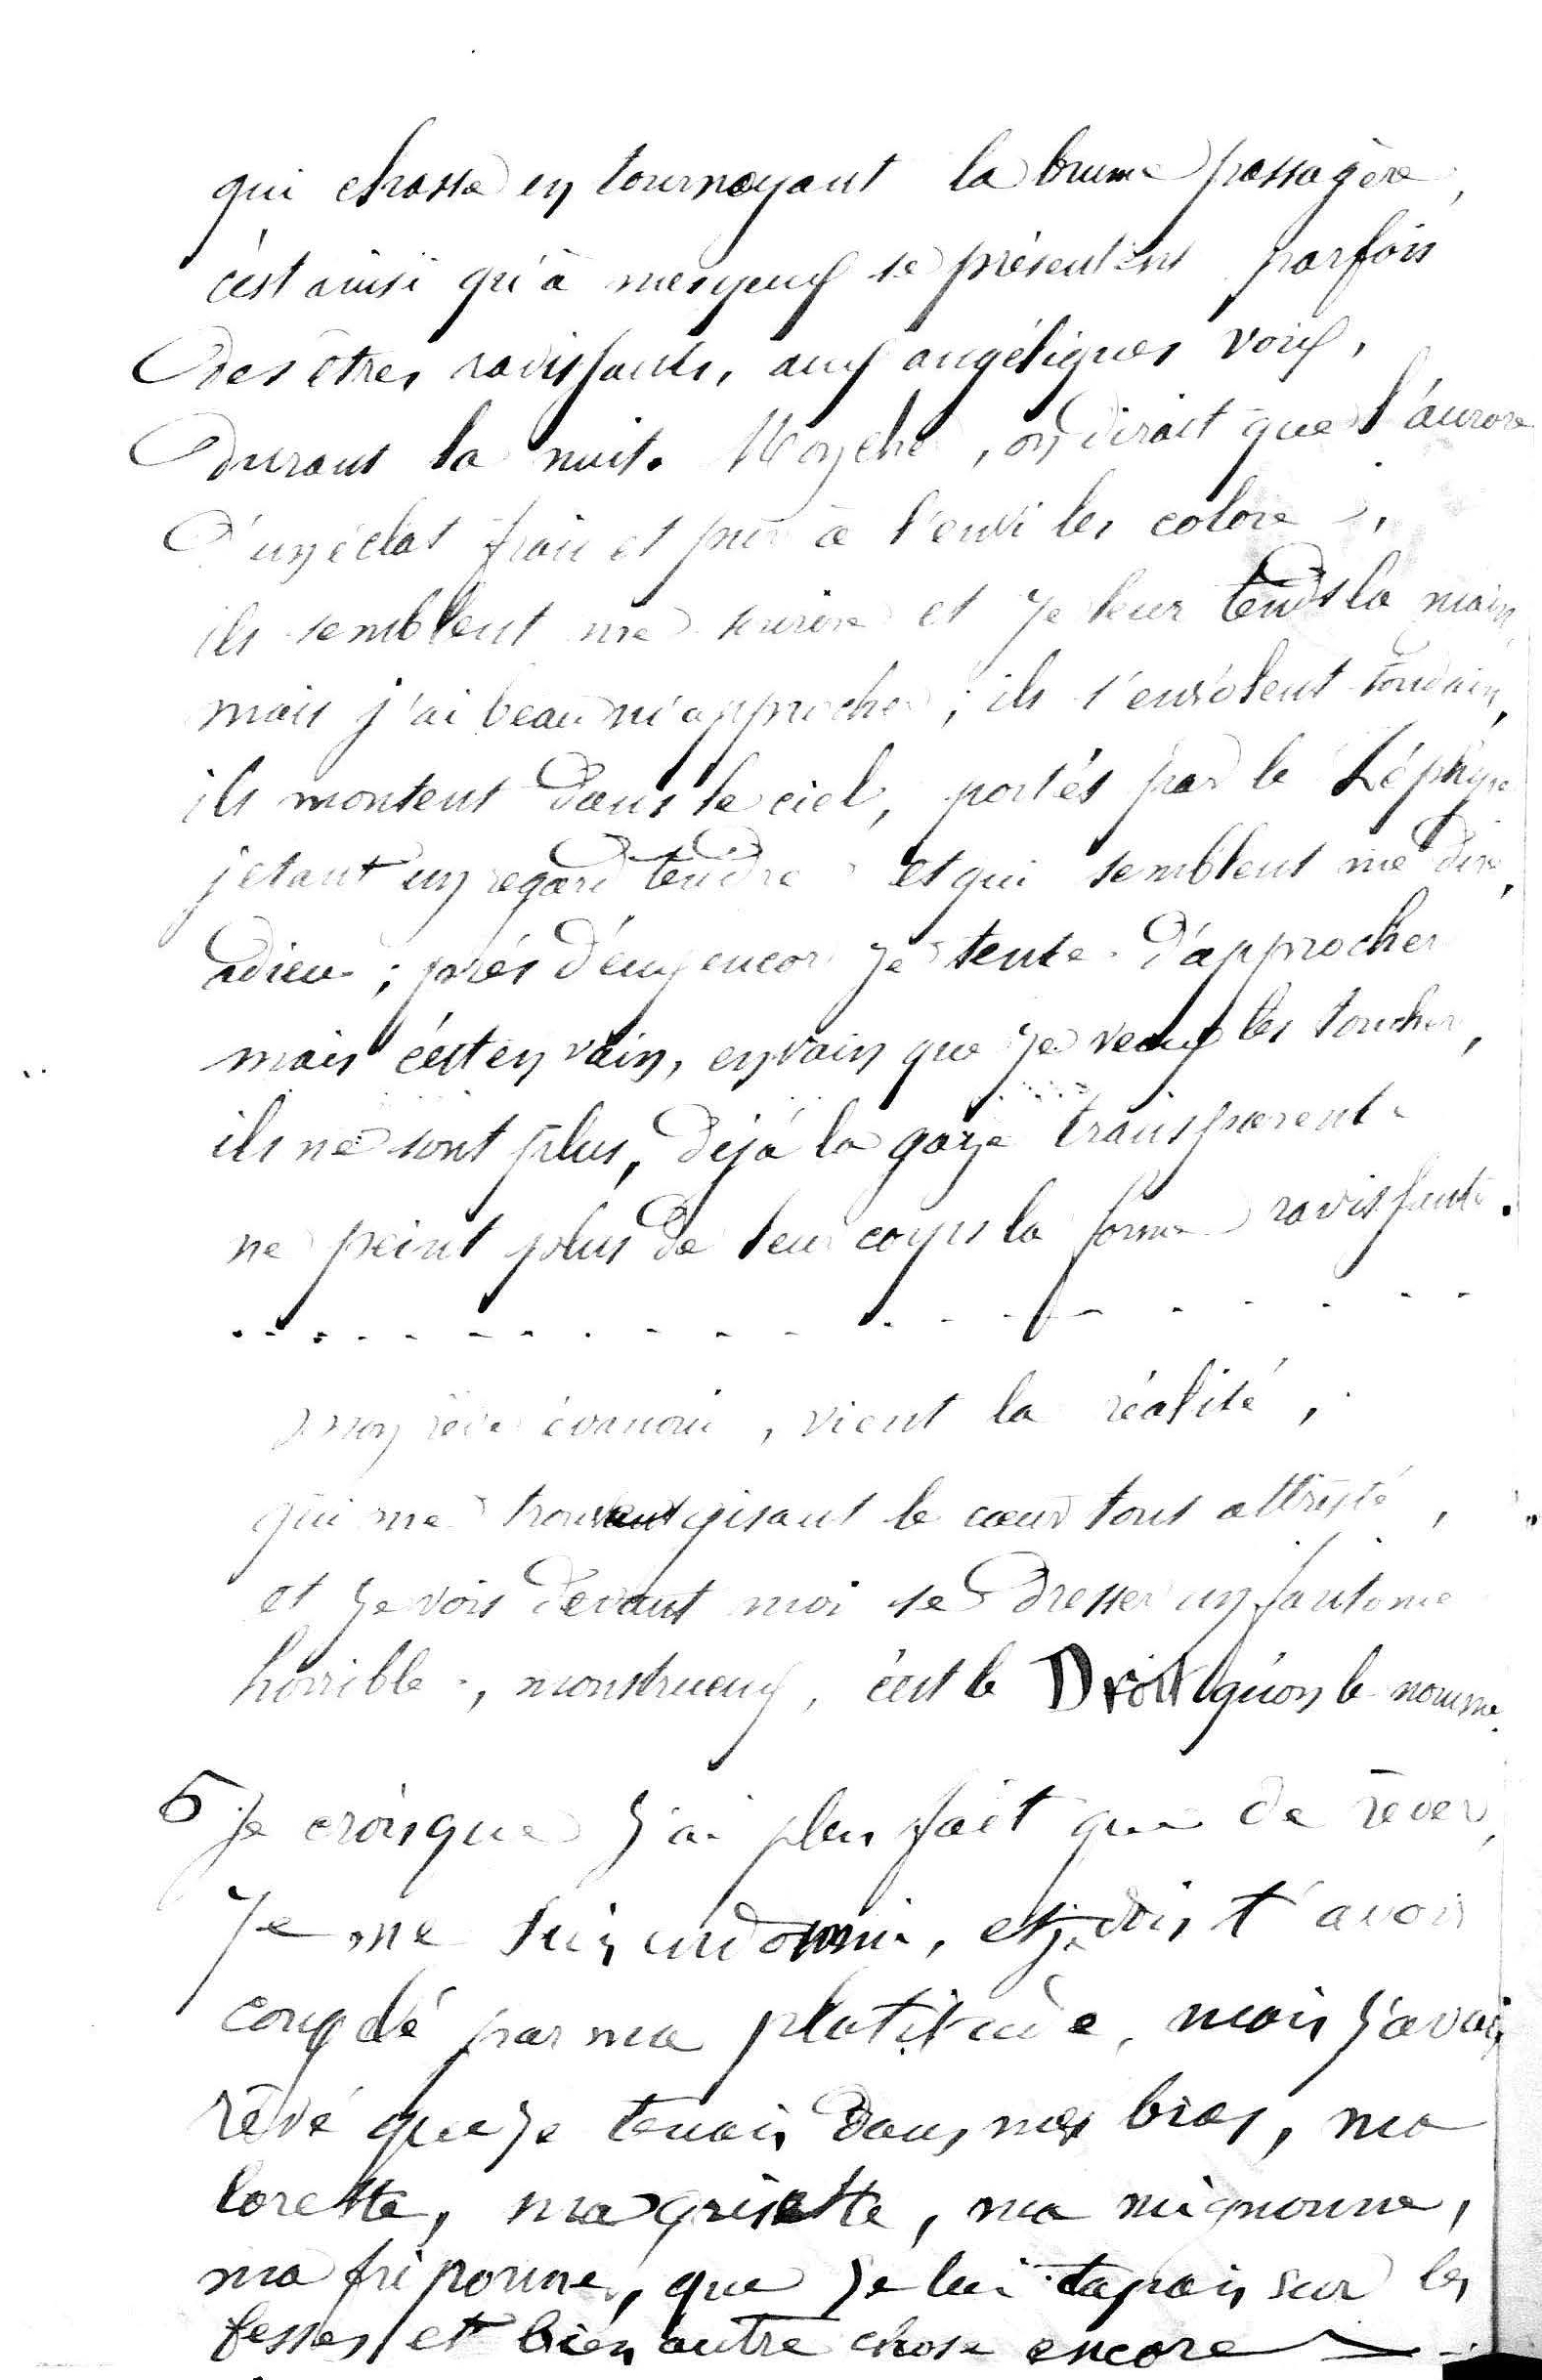 qui chasse en tournoyant la brume passagère,
c'est ainsi qu'à mes yeux se présentent parfois
Des êtres ravissants, aux angéliques voix,
Durant la nuit. , on dirait que l'aurore
D'un éclat frais et pur à l'envi les colore,
ils semblent me sourire et je leur tends la main,
mais j'ai beau m'approcher ; ils s'envolent soudain,
ils montent dans le ciel, portés par le Zéphyre
jetant un regard tendre et qui semblent me dire,
adieu ; près d'eux encor je tente d'approcher
mais c'est en vain, en vain que je veux les toucher,
ils ne sont plus, déjà la gaze transparente
ne peint plus de leur corps la forme ravissante.
. . . . . . . . . . . . . . . . . .
mon rêve évanoui, vient la réalité,
qui me trouvant gisant le cœur tout attristé,
et je vois devant moi se dresser un fantome
horrible, monstrueux, c'est le Droit qu'on le nomme.
5 Je crois que j'ai plus fait que de rêver,
Je me suis endormi, et je dois t'avoir
par ma platitude, mais j'avais
rêvé que je tenais dans mes bras, ma
lorette, ma grisette, ma mignonne,
ma friponne, que je lui tapais sur les
fesses et bien autre chose encore